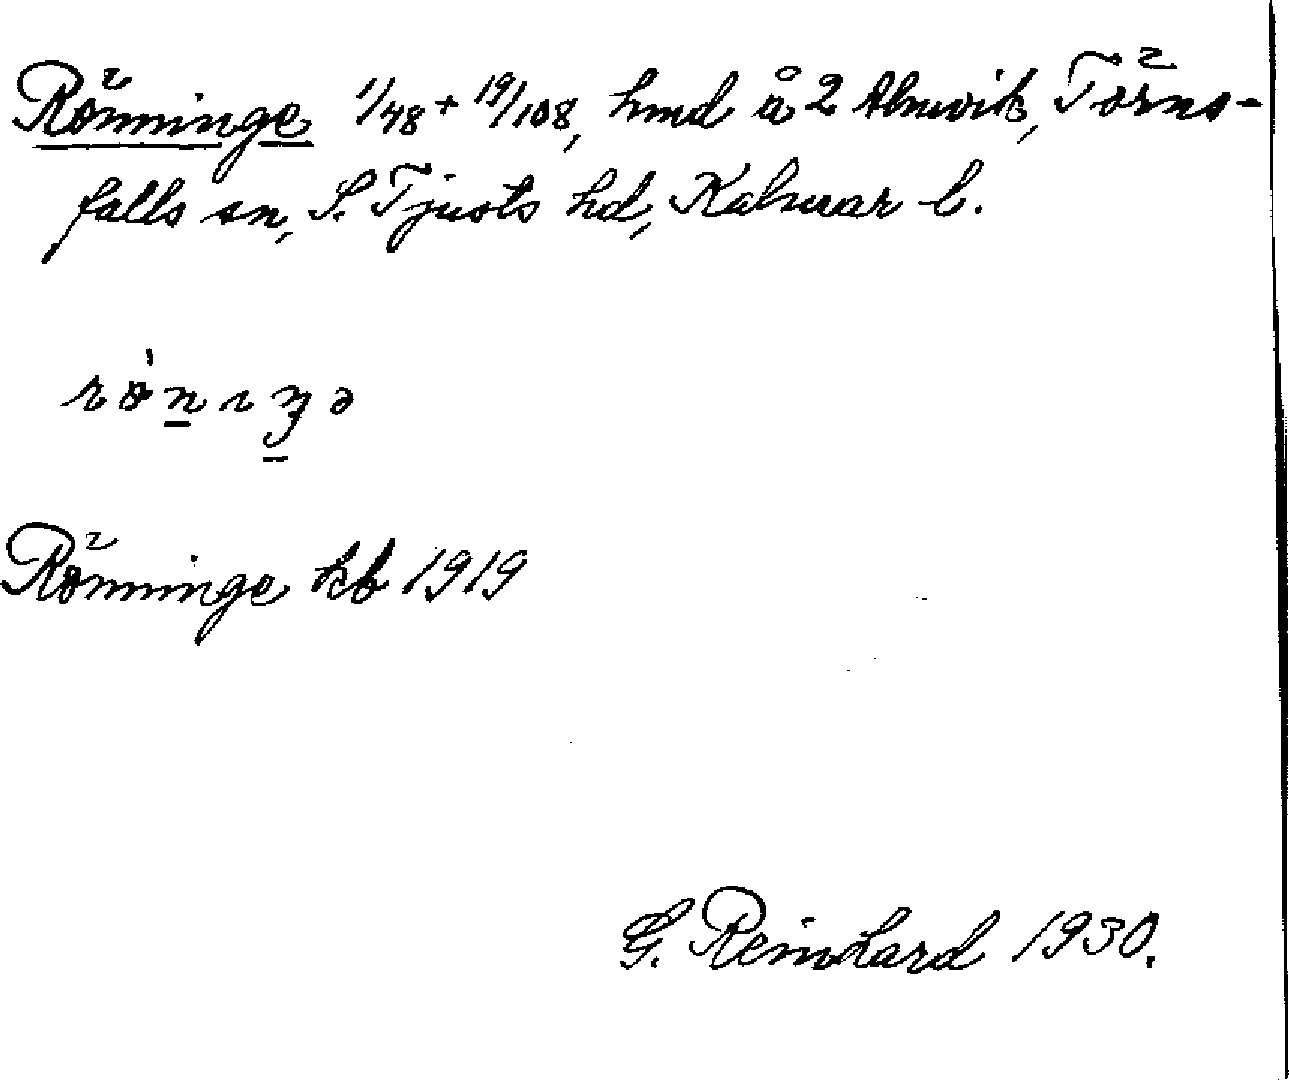 Rönninge 1/48 + 19/108, hmd å 2 Almvik, Törns-
falls sn, S. Tjusts hd, Kalmar l.
rö́nıŋə
Rönninge kb 1919
G. Reinhard 1930.